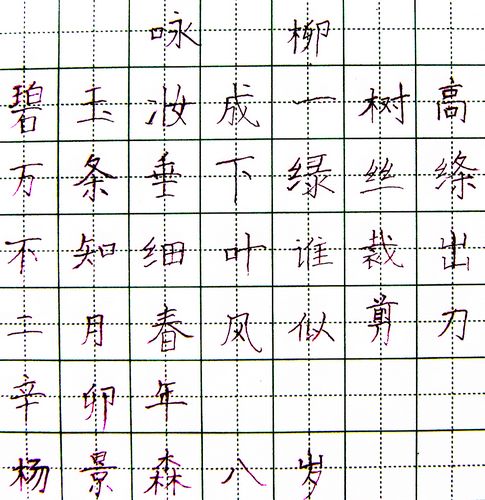 咏柳
碧玉汝成一树高
万条垂下绿丝绦
不知细叶谁裁出
二月春风似剪刀
辛卯年
杨景森八岁